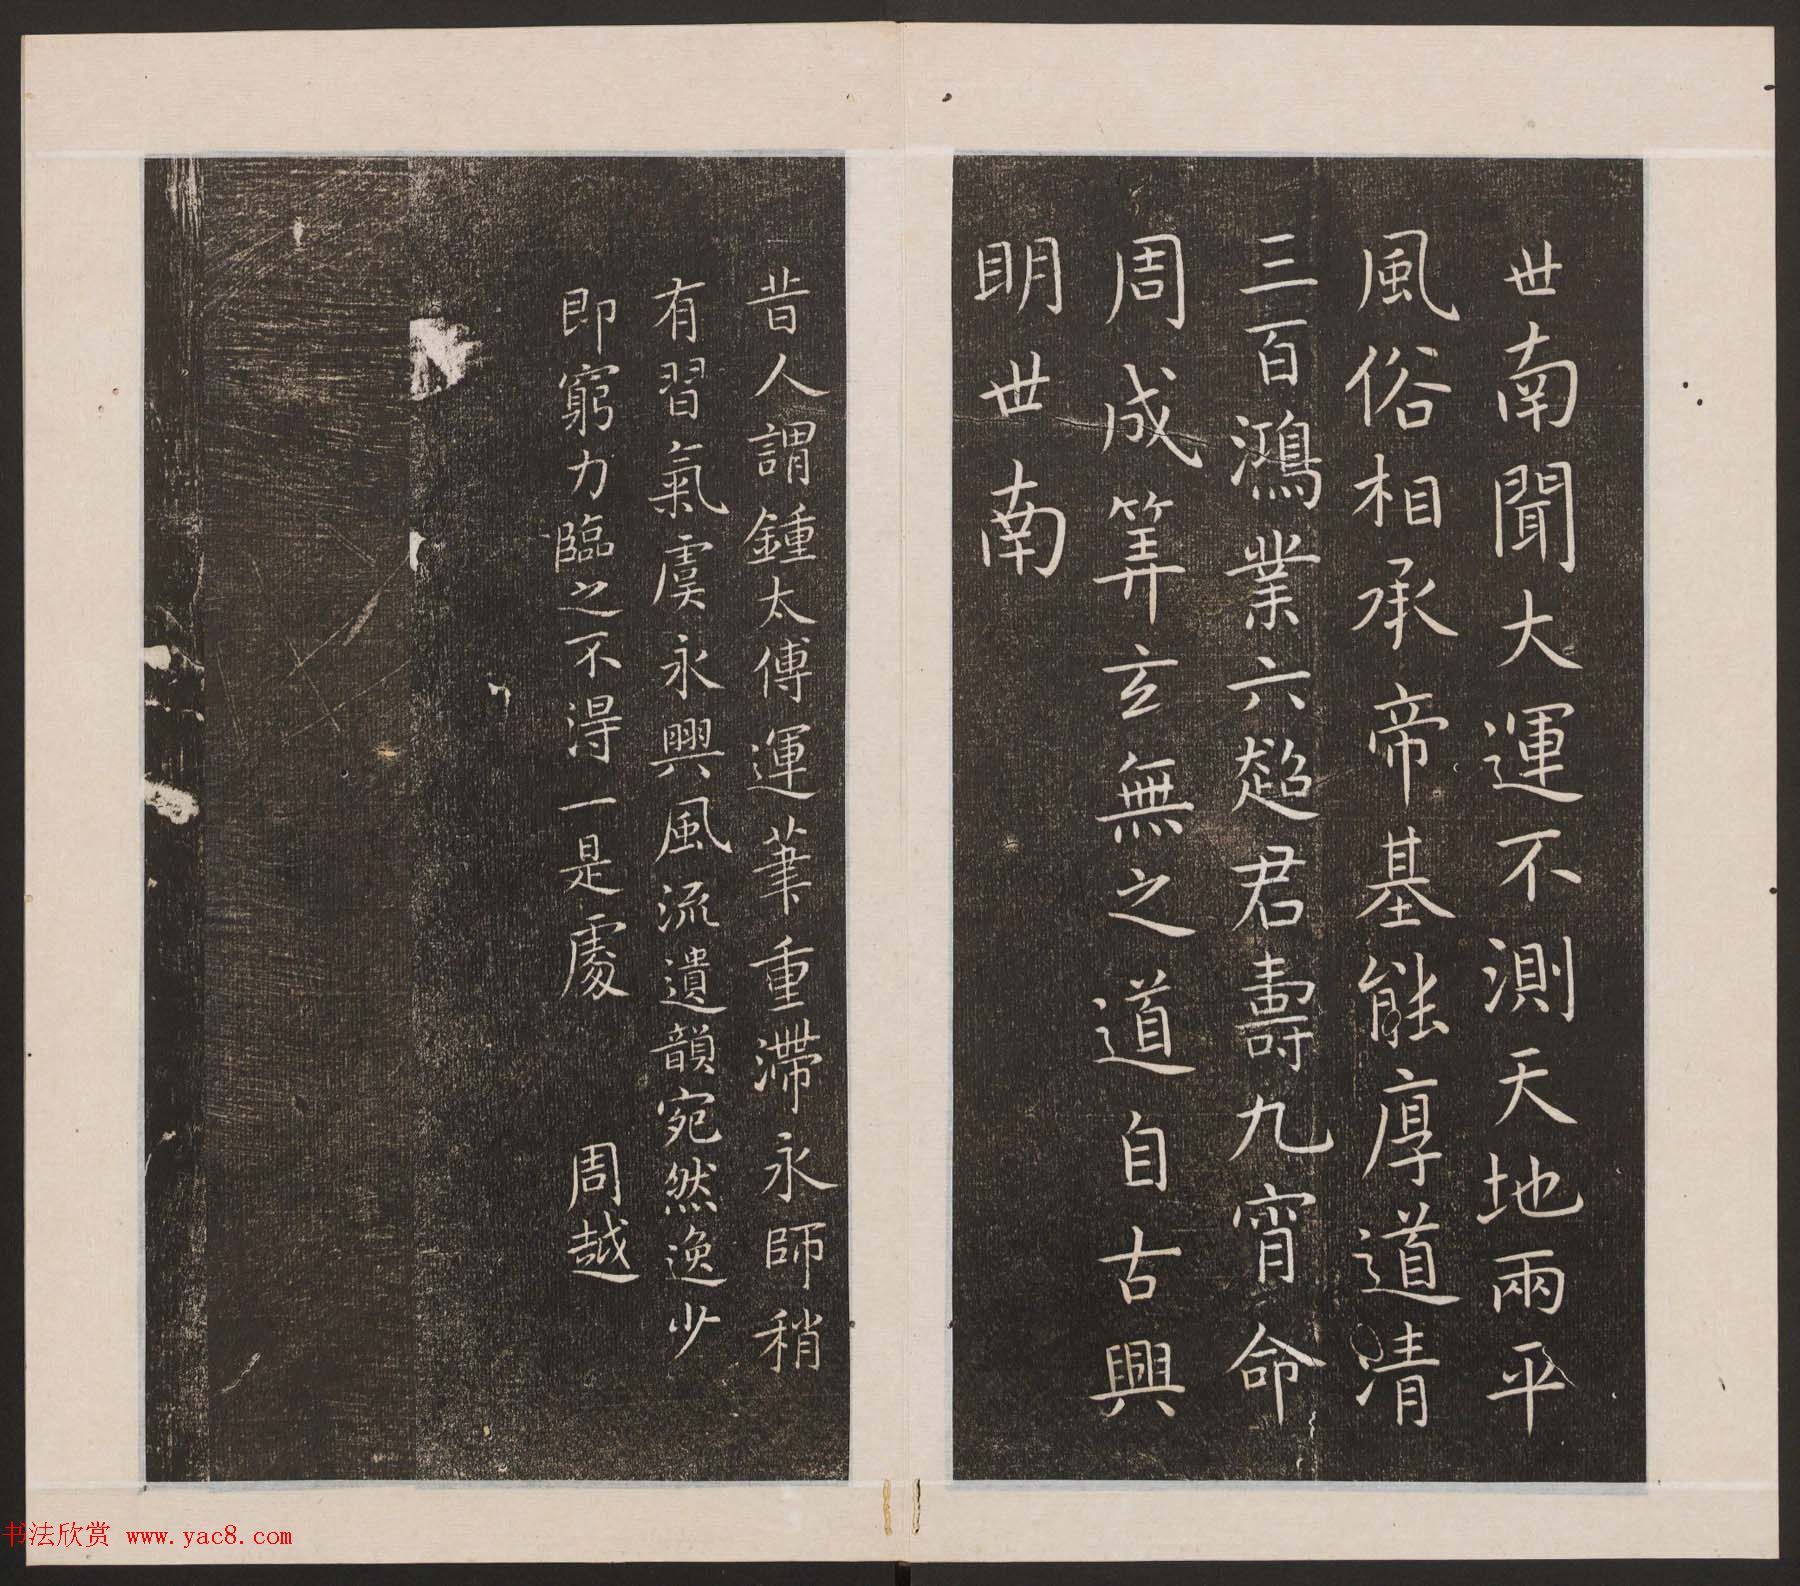 世南聞大運不測天地兩平
風俗相承帝基能厚道清
三百鴻業六超君壽九霄命
周成筭玄無之道自古興
明世南
昔人謂鍾太傅運筆重滯永師稍
有習氣虞永興風流遺韻宛然逸少
即窮力臨之不得一是處 周越
书法欣赏 www.yac8.com